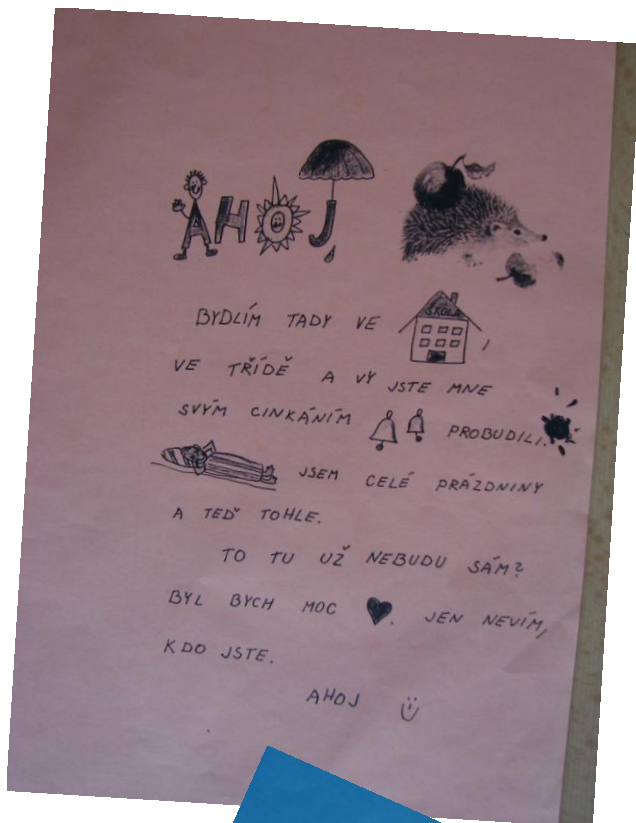 AHOJ
BYDLÍM TADY VE ŠKOLA,
VE TŘÍDĚ A VY JSTE MNE
SVÝM CINKÁNÍM PROBUDILI.
JSEM CELÉ PRÁZDNINY
A TEĎ TOHLE.
TO TU UŽ NEBUDU SÁM?
BYL BYCH MOC . JEN NEVÍM,
KDO JSTE.
AHOJ